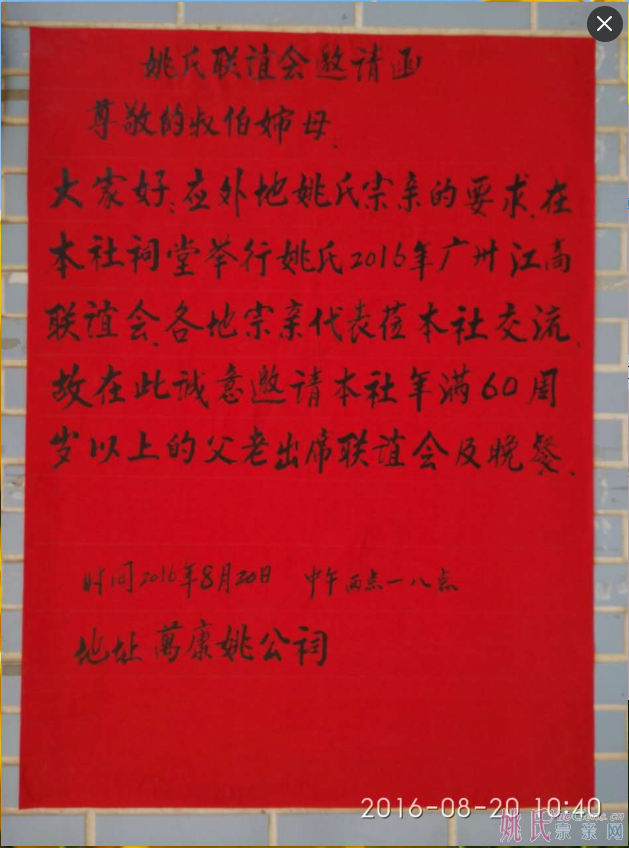 姚氏联谊会邀请函
尊敬的叔伯婶母:
大家好,应外地姚氏宗亲的要求,在
本社祠堂举行姚氏2016年广州江高
联谊会,各地宗亲代表莅本社交流,
故在此诚意邀请本社年满60周
岁以上的父老出席联谊会及晚餐、
时间2016年8月20日 中午两点一八点
地址 萬康姚公祠
2016-08-20 10:40
姚氏宗亲网